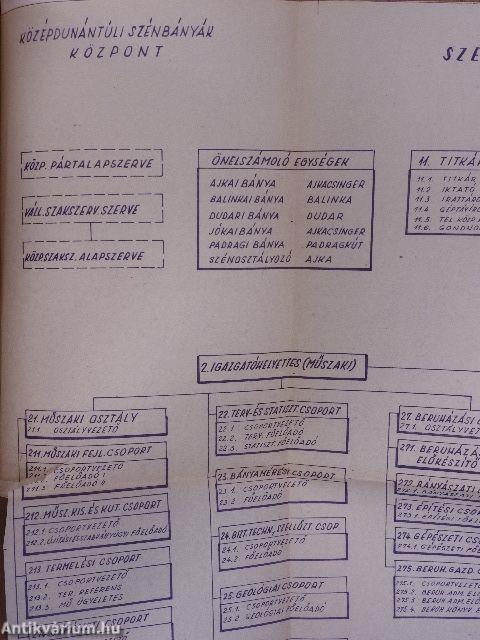 KÖZÉPDUNÁNTÚLI SZÉNBÁNYÁK
KÖZPONT
SZE
KÖZP. PÁRTALAPSZERVE
VÁLL. SZAKSZERV. SZERVE
KÖZP. SZAKSZ. ALAPSZERVE
ÖNELSZÁMOLÓ EGYSÉGEK
AJKAI BÁNYA AJKACSINGER
BALINKAI BÁNYA BALINKA
DUDARI BÁNYA DUDAR
JÓKAI BÁNYA AJKACSINGER
PADRAGI BÁNYA PADRAGKÚT
SZÉNOSZTÁLYOZÓ AJKA
11. TITKÁR
11.1. TITKÁR
11.2 IKTATÓ
11.3 IRATTÁRO
11.4 GÉPTÁVÍRÓ
11.5. TEL. KÖZP.
11.6. GONDNO
2. IGAZGATÓHELYETTES (MŰSZAKI)
21. MŰSZAKI OSZTÁLY
21.1. OSZTÁLYVEZETŐ
211. MŰSZAKI FEJL. CSOPORT
211.1. CSOPORTVEZETŐ
211.2. FŐELŐADÓ I
211.3 FŐELŐADÓ II
212. MŰSZ. KIS. ÉS KUT. CSOPORT
212.1. CSOPORTVEZETŐ
212.2. ÚJÍTÁSI ÉS SZABADALMÜGYI FŐELŐADÓ
213. TERMELÉSI CSOPORT
213.1. CSOPORTVEZETŐ
213.2. TER. REFERENS
213.3. MŰ. ÜGYELETES
CSOPORT
22. TERV- ÉS STATISZT. CSOPORT
22.1. CSOPORTVEZETŐ
22.2. TERV. FŐELŐADÓ
22.3. STATISZT. FŐELŐADÓ
23. BÁNYAMÉRÉSI CSOPORT
23.1. CSOPORTVEZETŐ
23.2 FŐELŐADÓ
24. BIZT. TECHN., SZELLŐZT. CSOP.
24.1. CSOPORTVEZETŐ
24.2 FŐELŐADÓ
25. GEOLÓGIAI CSOPORT
25.1. CSOPORTVEZETŐ
25.2 GEOLÓGIAI FŐELŐADÓ
27. BERUHÁZÁSI O
27.1. OSZTÁLYVEZ
271. BERUHÁZÁS
ELŐKÉSZÍTŐ
272. BÁNYÁSZATI C
273. ÉPÍTÉSI CSO
273.1. ÉPÍTÉSI FŐEL
274. GÉPÉSZETI CS
274.1 GÉPÉSZETI FŐEL
275. BERUH. GAZD. C
275.1. CSOPORTVEZET
275.2. BERUH. ADM. ELŐ
275.3. BERUH. ADM. ELŐ
275.4. BERUH. KÖNYV. E
Antikvárium.hu